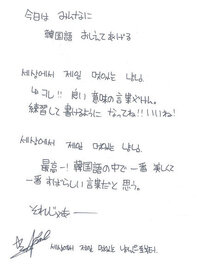 今日は みんなに
韓国語 おしえてあげる
세상에서 제일 멋있는 남남.
良い 意味の言葉やねん。
練習して書けるように なってね!! いいね!
세상에서 제일 멋있는 남남.
最高ー! 韓国語の中で 一番 美しくて
一番 すばらしい 言葉だと 思う。
それじゃあ ――
세상에서 제일 멋있는